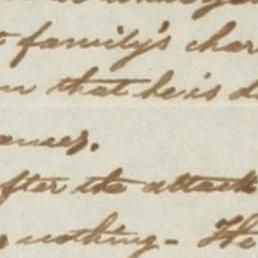 family's char
that he is d
ances.
after the attack
nothing - He